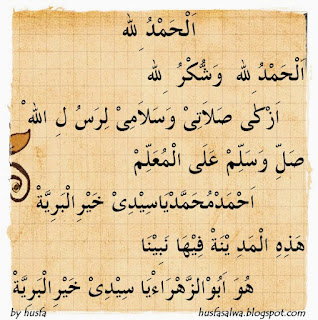 اَلْحَمْدُ لِلّٰه
اَلْحَمْدُ لِلّٰه وَشُّكْرُ لِلّٰه
اَزْكٰى صَلَاتِيْ وَسَلَامِيْ لِرَسُ لِ اللّٰه
صَلِّ وَسَلِّمْ عَلَى الْمُعَلِّمْ
اَحْمَدْمُحَمَّدْيَاسِيْدِىْ خَيْرِالْبَرِيَّةْ
هَذِهِ الْمَدِ يْنَةْ فِيْهَا نَبِيْنَا
هُوَ اَبُوْالزَّهْرَاءِيَا سِيْدِىْ خَيْرِالْبَرِيَّةْ
by husfa husfasalwa.blogspot.com